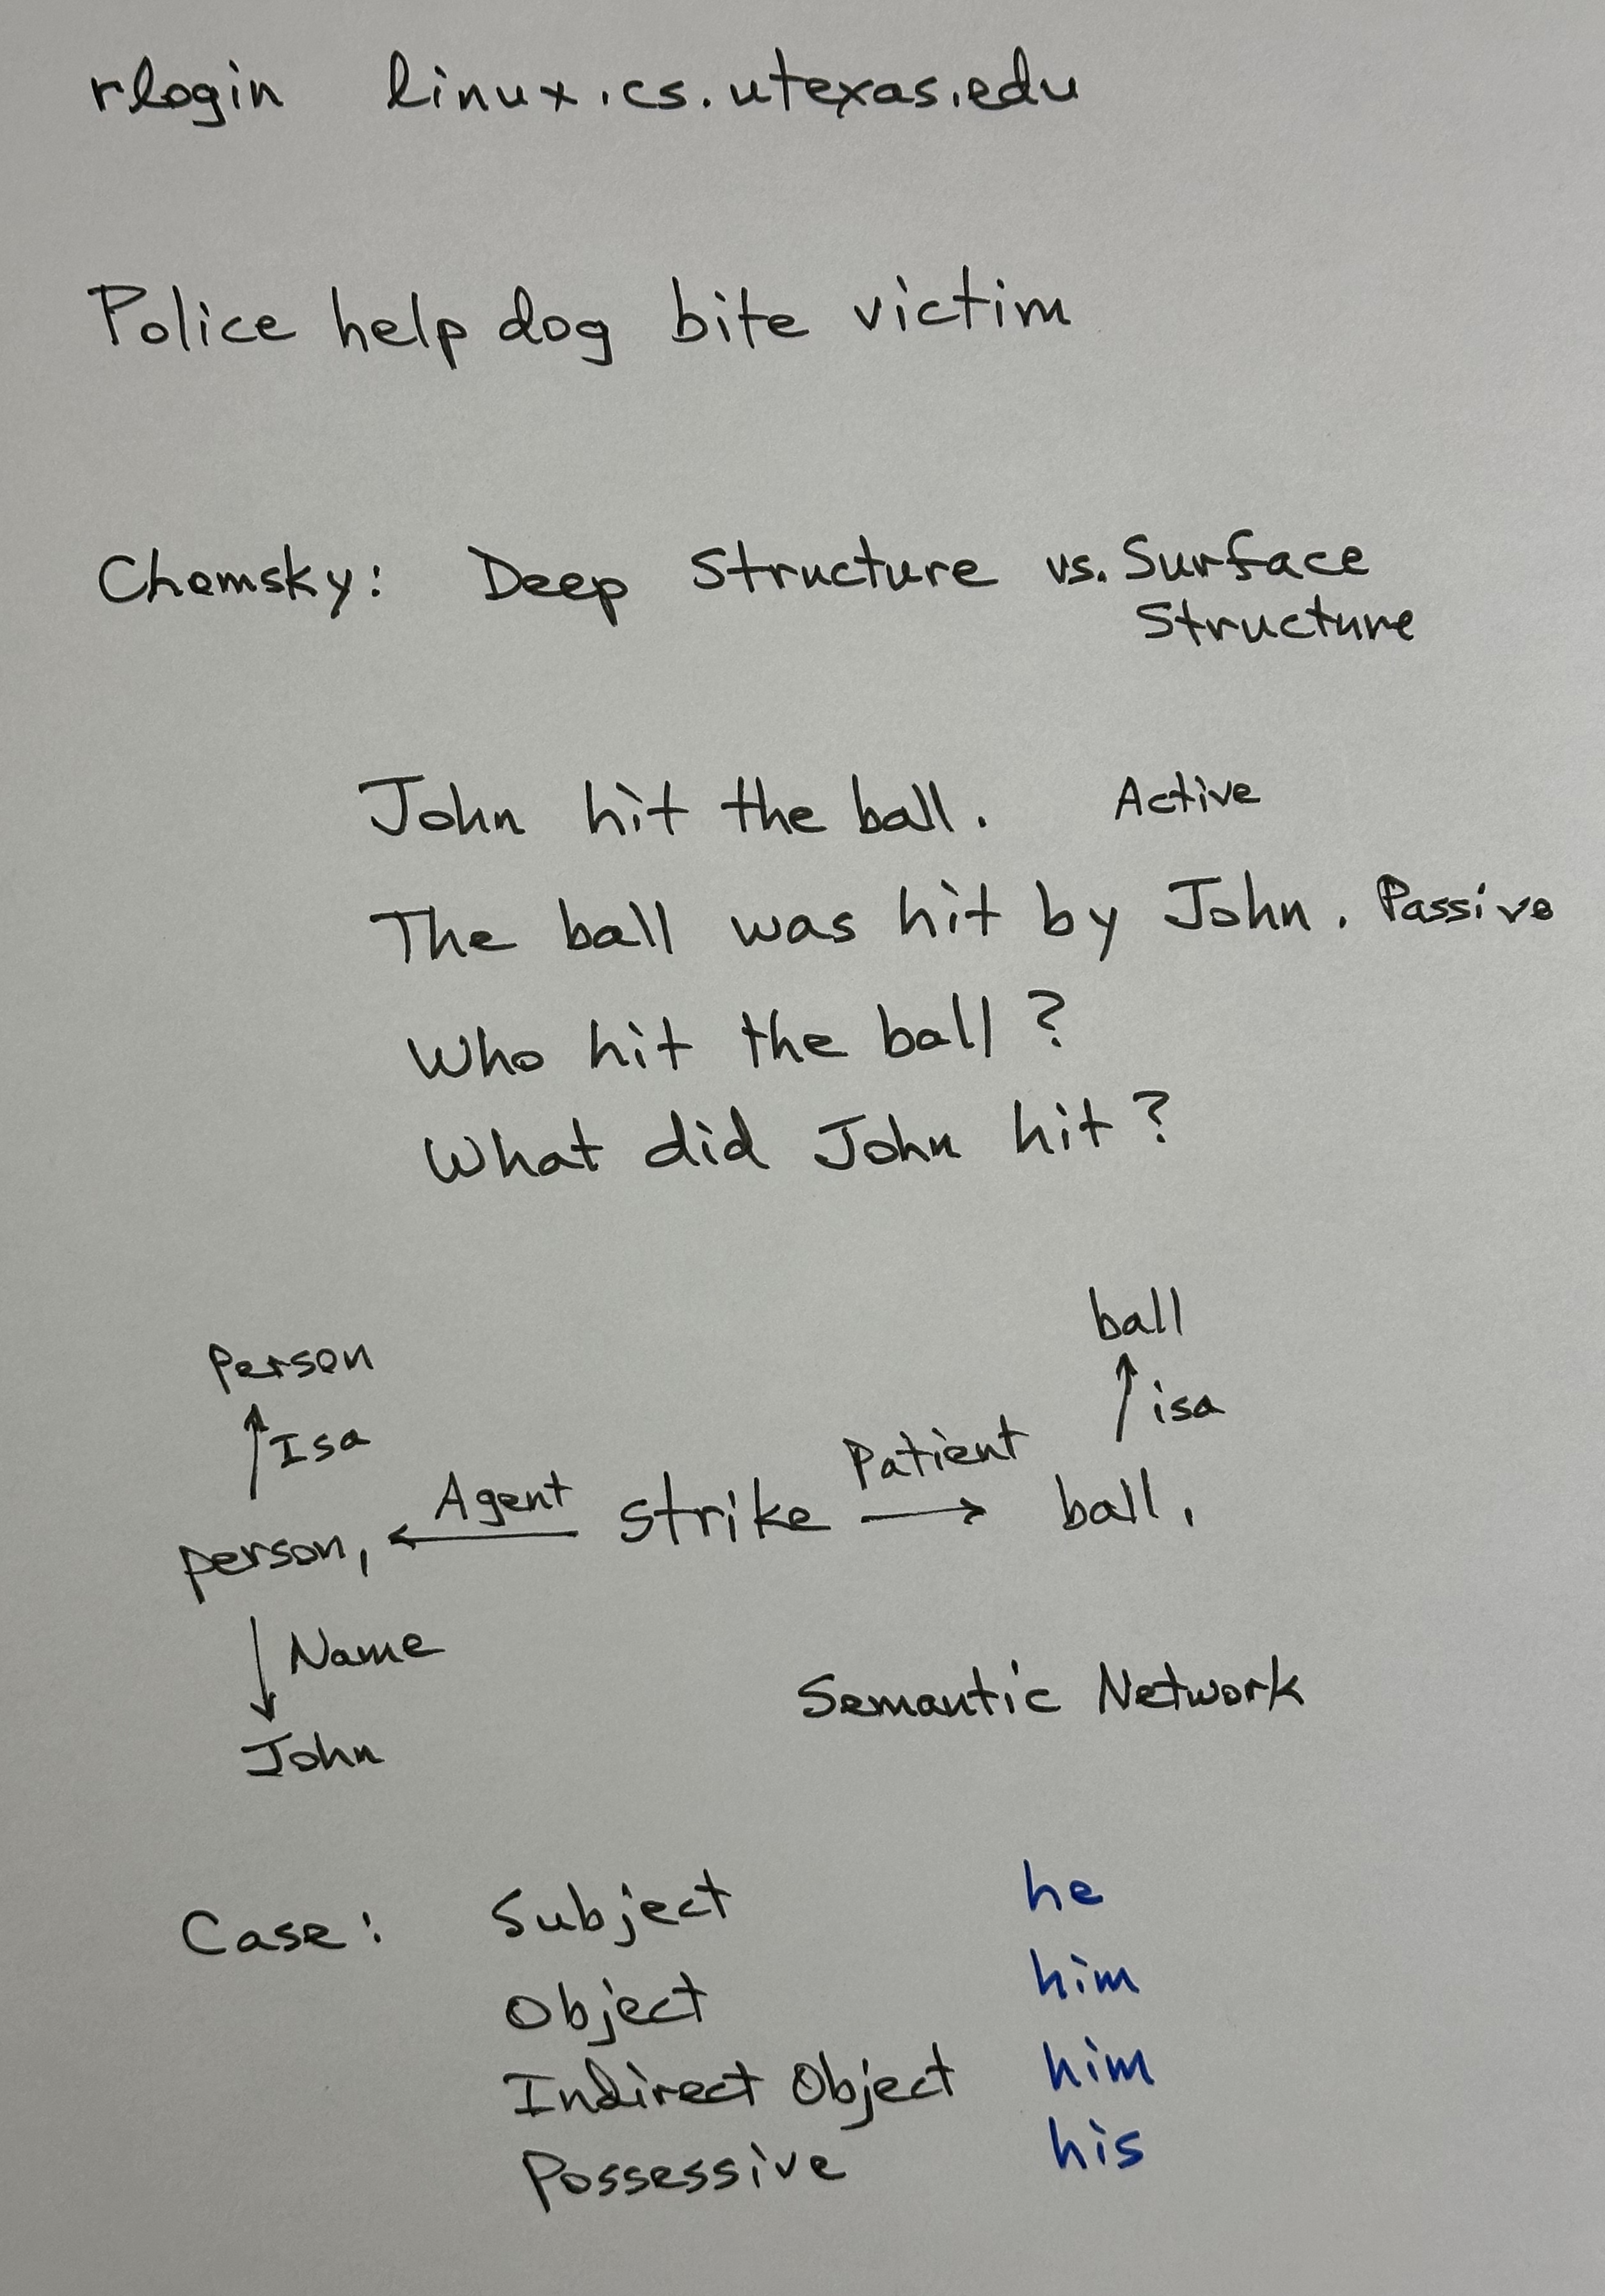 rlogin linux.cs.utexas.edu
Police help dog bite victim
Chomsky: Deep Structure vs. Surface
Structure
John hit the ball. Active
The ball was hit by John. Passive
Who hit the ball?
What did John hit?
ball
Person
↑ Isa
↑ isa
person₁ ← Agent strike Patient → ball₁
↓ Name
Semantic Network
John
Case: Subject he
Object him
Indirect Object him
Possessive his